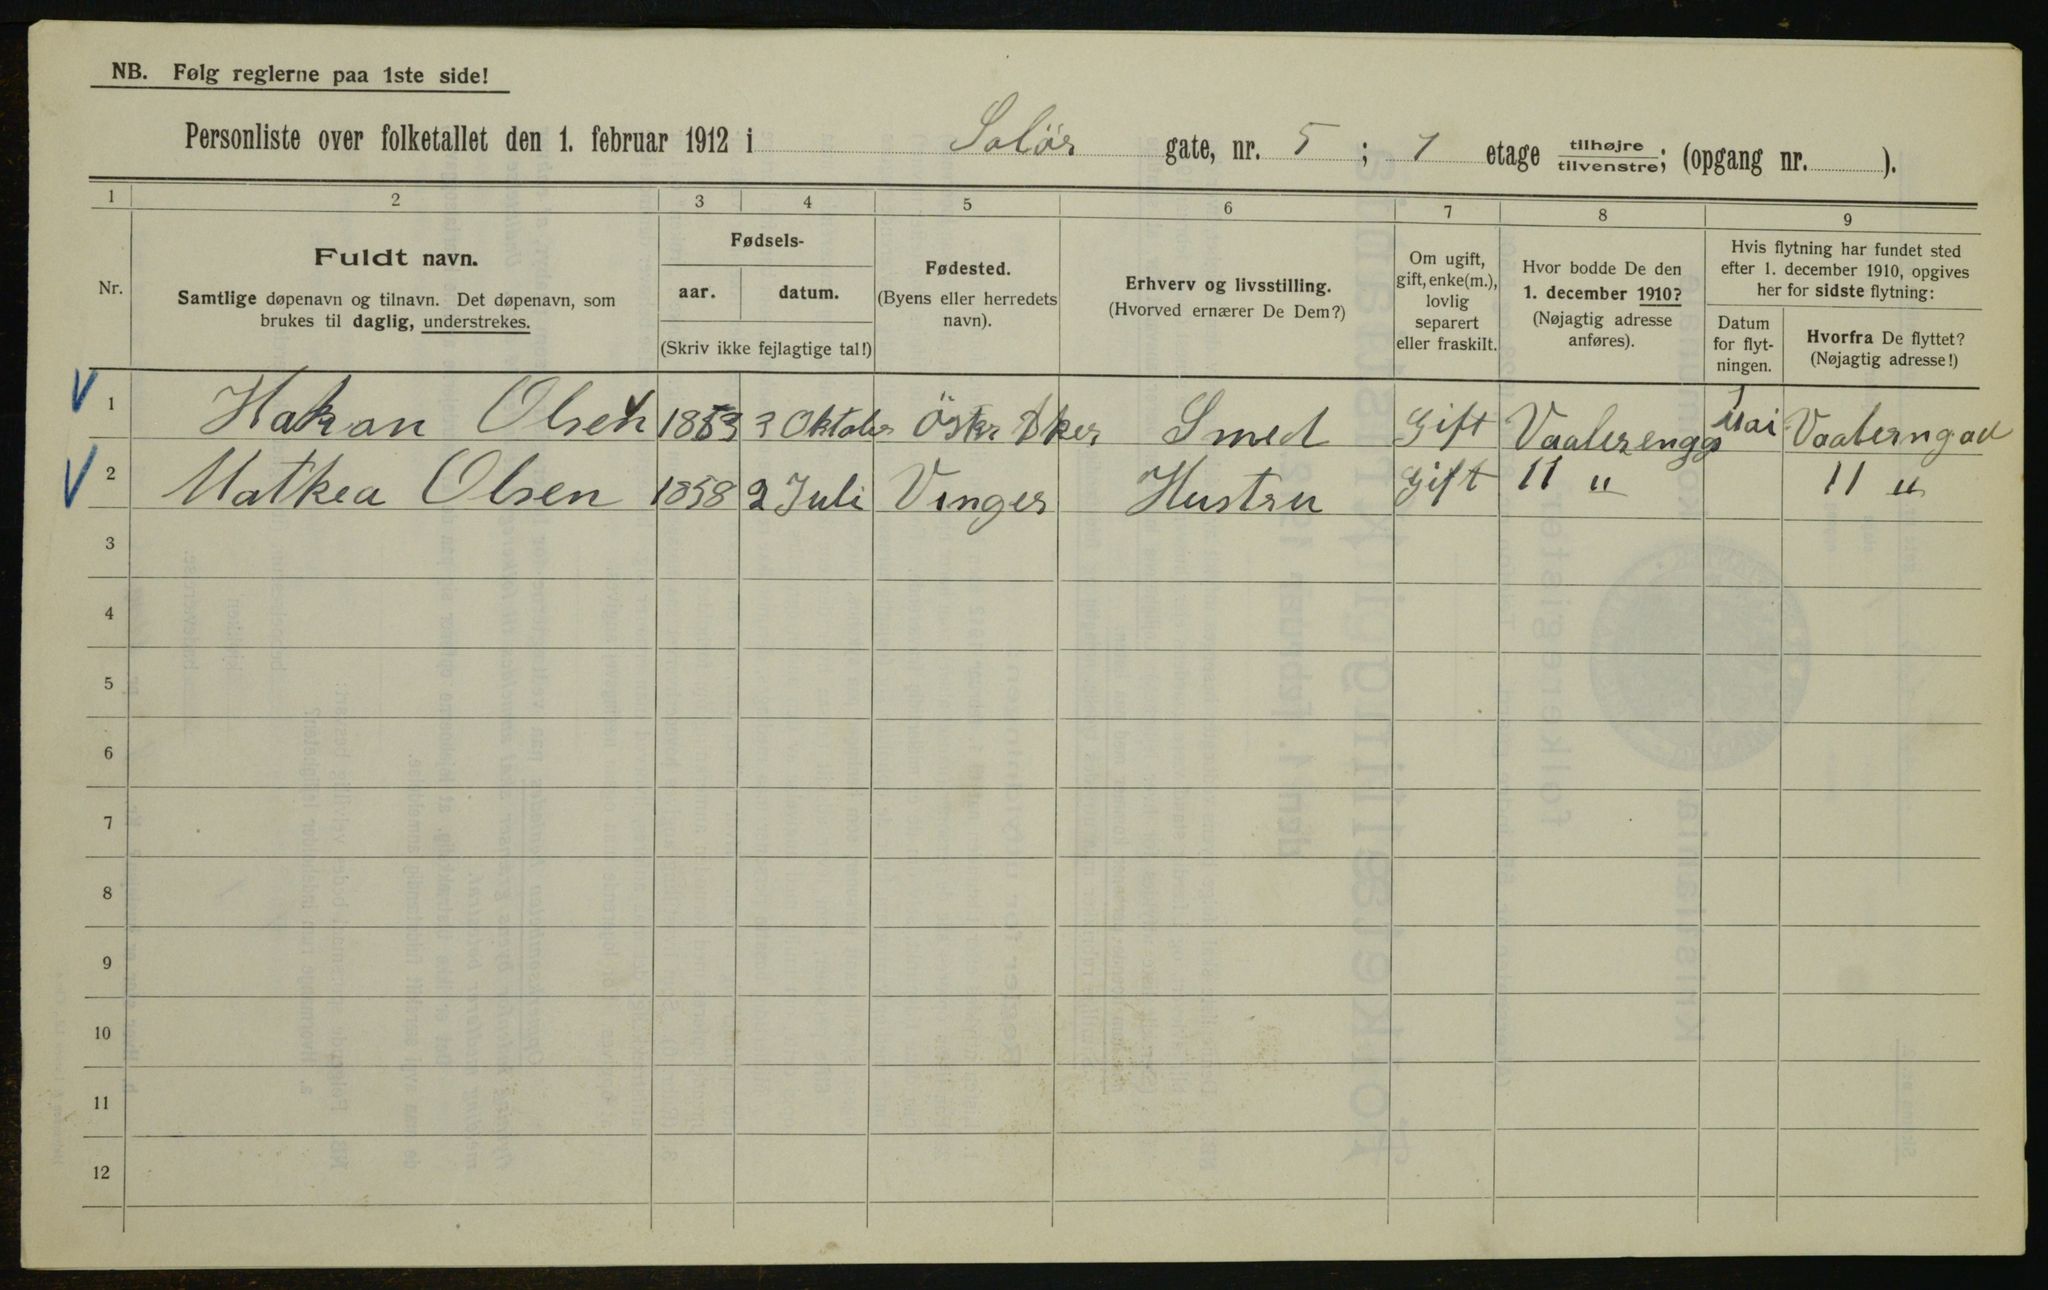 NB. Følg reglerne paa 1ste side!
Personliste over folketallet den 1. februar 1912 i Solør gate, nr. 5; 1 etage tilhøjre/tilvenstre; (opgang nr. ).
1 2 3 4 5 6 7 8 9
Nr.
Fuldt navn.
Samtlige døpenavn og tilnavn. Det døpenavn, som
brukes til daglig, understrekes.
Fødsels-
aar. datum.
(Skriv ikke fejlagtige tal!)
Fødested.
(Byens eller herredets
navn).
Erhverv og livsstilling.
(Hvorved ernærer De Dem?)
Om ugift,
gift, enke(m.),
lovlig
separert
eller fraskilt.
Hvor bodde De den
1. december 1910?
(Nøjagtig adresse
anføres).
Hvis flytning har fundet sted
efter 1. december 1910, opgives
her for sidste flytning:
Datum
for flyt-
ningen.
Hvorfra De flyttet?
(Nøjagtig adresse!)
1 Hakan Olsen 1853 3 Oktober Östr Aker Smed Gift Vaalerengg 1 Mai Vaalerngad
2 Mathea Olsen 1858 2 Juli Vinger Hustru Gift 11 " 11 "
3
4
5
6
7
8
9
10
11
12